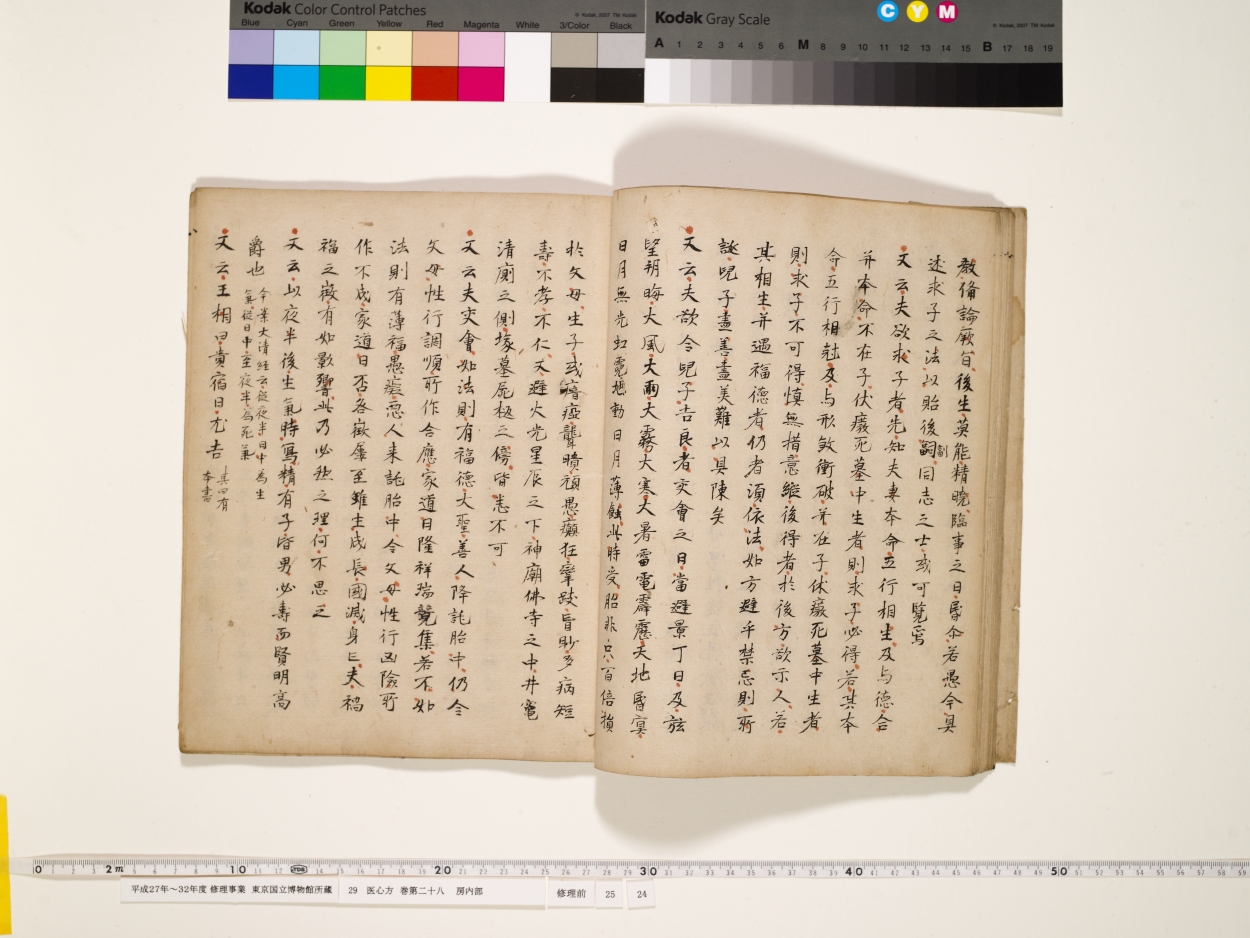 Kodak Color Control Patches
Blue Cyan Green Yellow Red Magenta White 3/Color Black
© Kodak, 2007 TM: Kodak
Kodak Gray Scale
C Y M
© Kodak, 2007 TM: Kodak
A 1 2 3 4 5 6 M 8 9 10 11 12 13 14 15 B 17 18 19
教備論厥旨後生莫能精曉臨事之日昏尒若愚今具
述求子之法以貽後嗣同志之士或可覽焉
又云夫欲求子者先知夫妻本命五行相生及与德合
并本命不在子休廢死墓中生者則求子必得若其本
命五行相尅及与形煞衝破并在子休廢死墓中生者
則求子不可得慎無措意縱後得者於後方欲示人若
其相生并遇福德者仍者須依法如方避乎禁忌則所
誕兒子盡善盡美難以具陳矣
又云夫欲令兒子吉良者交會之日當避景丁日及弦
望朔晦大風大雨大霧大寒大暑雷電霹靂天地昏冥
日月無光虹霓地動日月薄蝕此時受胎非只百倍損
於父母生子或瘖瘂聾聵頑愚癲狂攣跛盲眇多病短
壽不孝不仁又避火光星辰之下神廟佛寺之中井竃
清廁之側塚墓屍柩之傍皆悉不可
又云夫交會如法則有福德大聖善人降託胎中仍令
父母性行調順所作合應家道日隆祥瑞競集若不如
法則有薄福愚癡惡人来託胎中令父母性行凶險所
作不成家道日否咎徵屢至雖生成長國滅身亡夫禍
福之徵有如影響此乃必然之理何不思之
又云以夜半後生氣時寫精有子皆男必壽而賢明高
爵也 今案大清経云從夜半日中為生
氣從日中至夜半為死氣
又云王相日貴宿日尤吉 其日有
本書
0 2m 10 20 30 40 50
平成27年～32年度 修理事業 東京国立博物館所蔵 29 医心方 巻第二十八 房内部 修理前 25 24